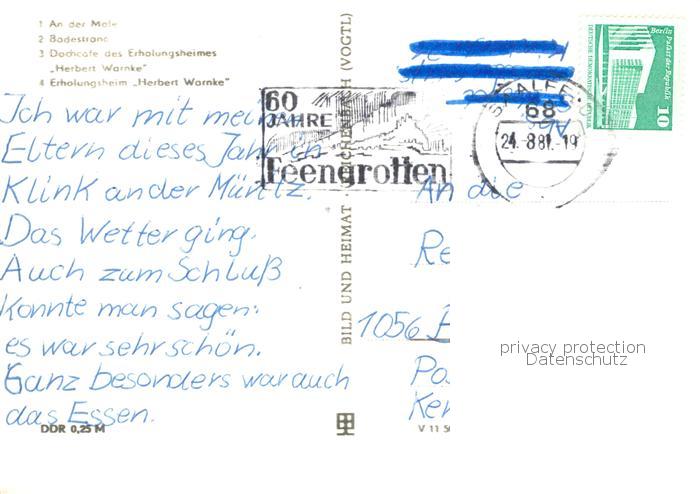 1 An der Mole
2 Badestrand
3 Dachcafe des Erholungsheimes
„Herbert Warnke"
4 Erholungsheim „Herbert Warnke"
Ich war mit mein
Eltern dieses Jahr in
Klink an der Müritz.
Das Wetter ging.
Auch zum Schluß
Konnte man sagen:
es war sehr schön.
Ganz besonders war auch
das Essen.
DDR 0,25 M
BILD UND HEIMAT REICHENBACH (VOGTL)
60
JAHRE
Feengrotten
SAALFE
68
24.-8.81.-19
Berlin
Palast der Republik
DEUTSCHE DEMOKRATISCHE REPUBLIK
10
An die
Re
1056
Po
Ker
V 11 50
privacy protection
Datenschutz